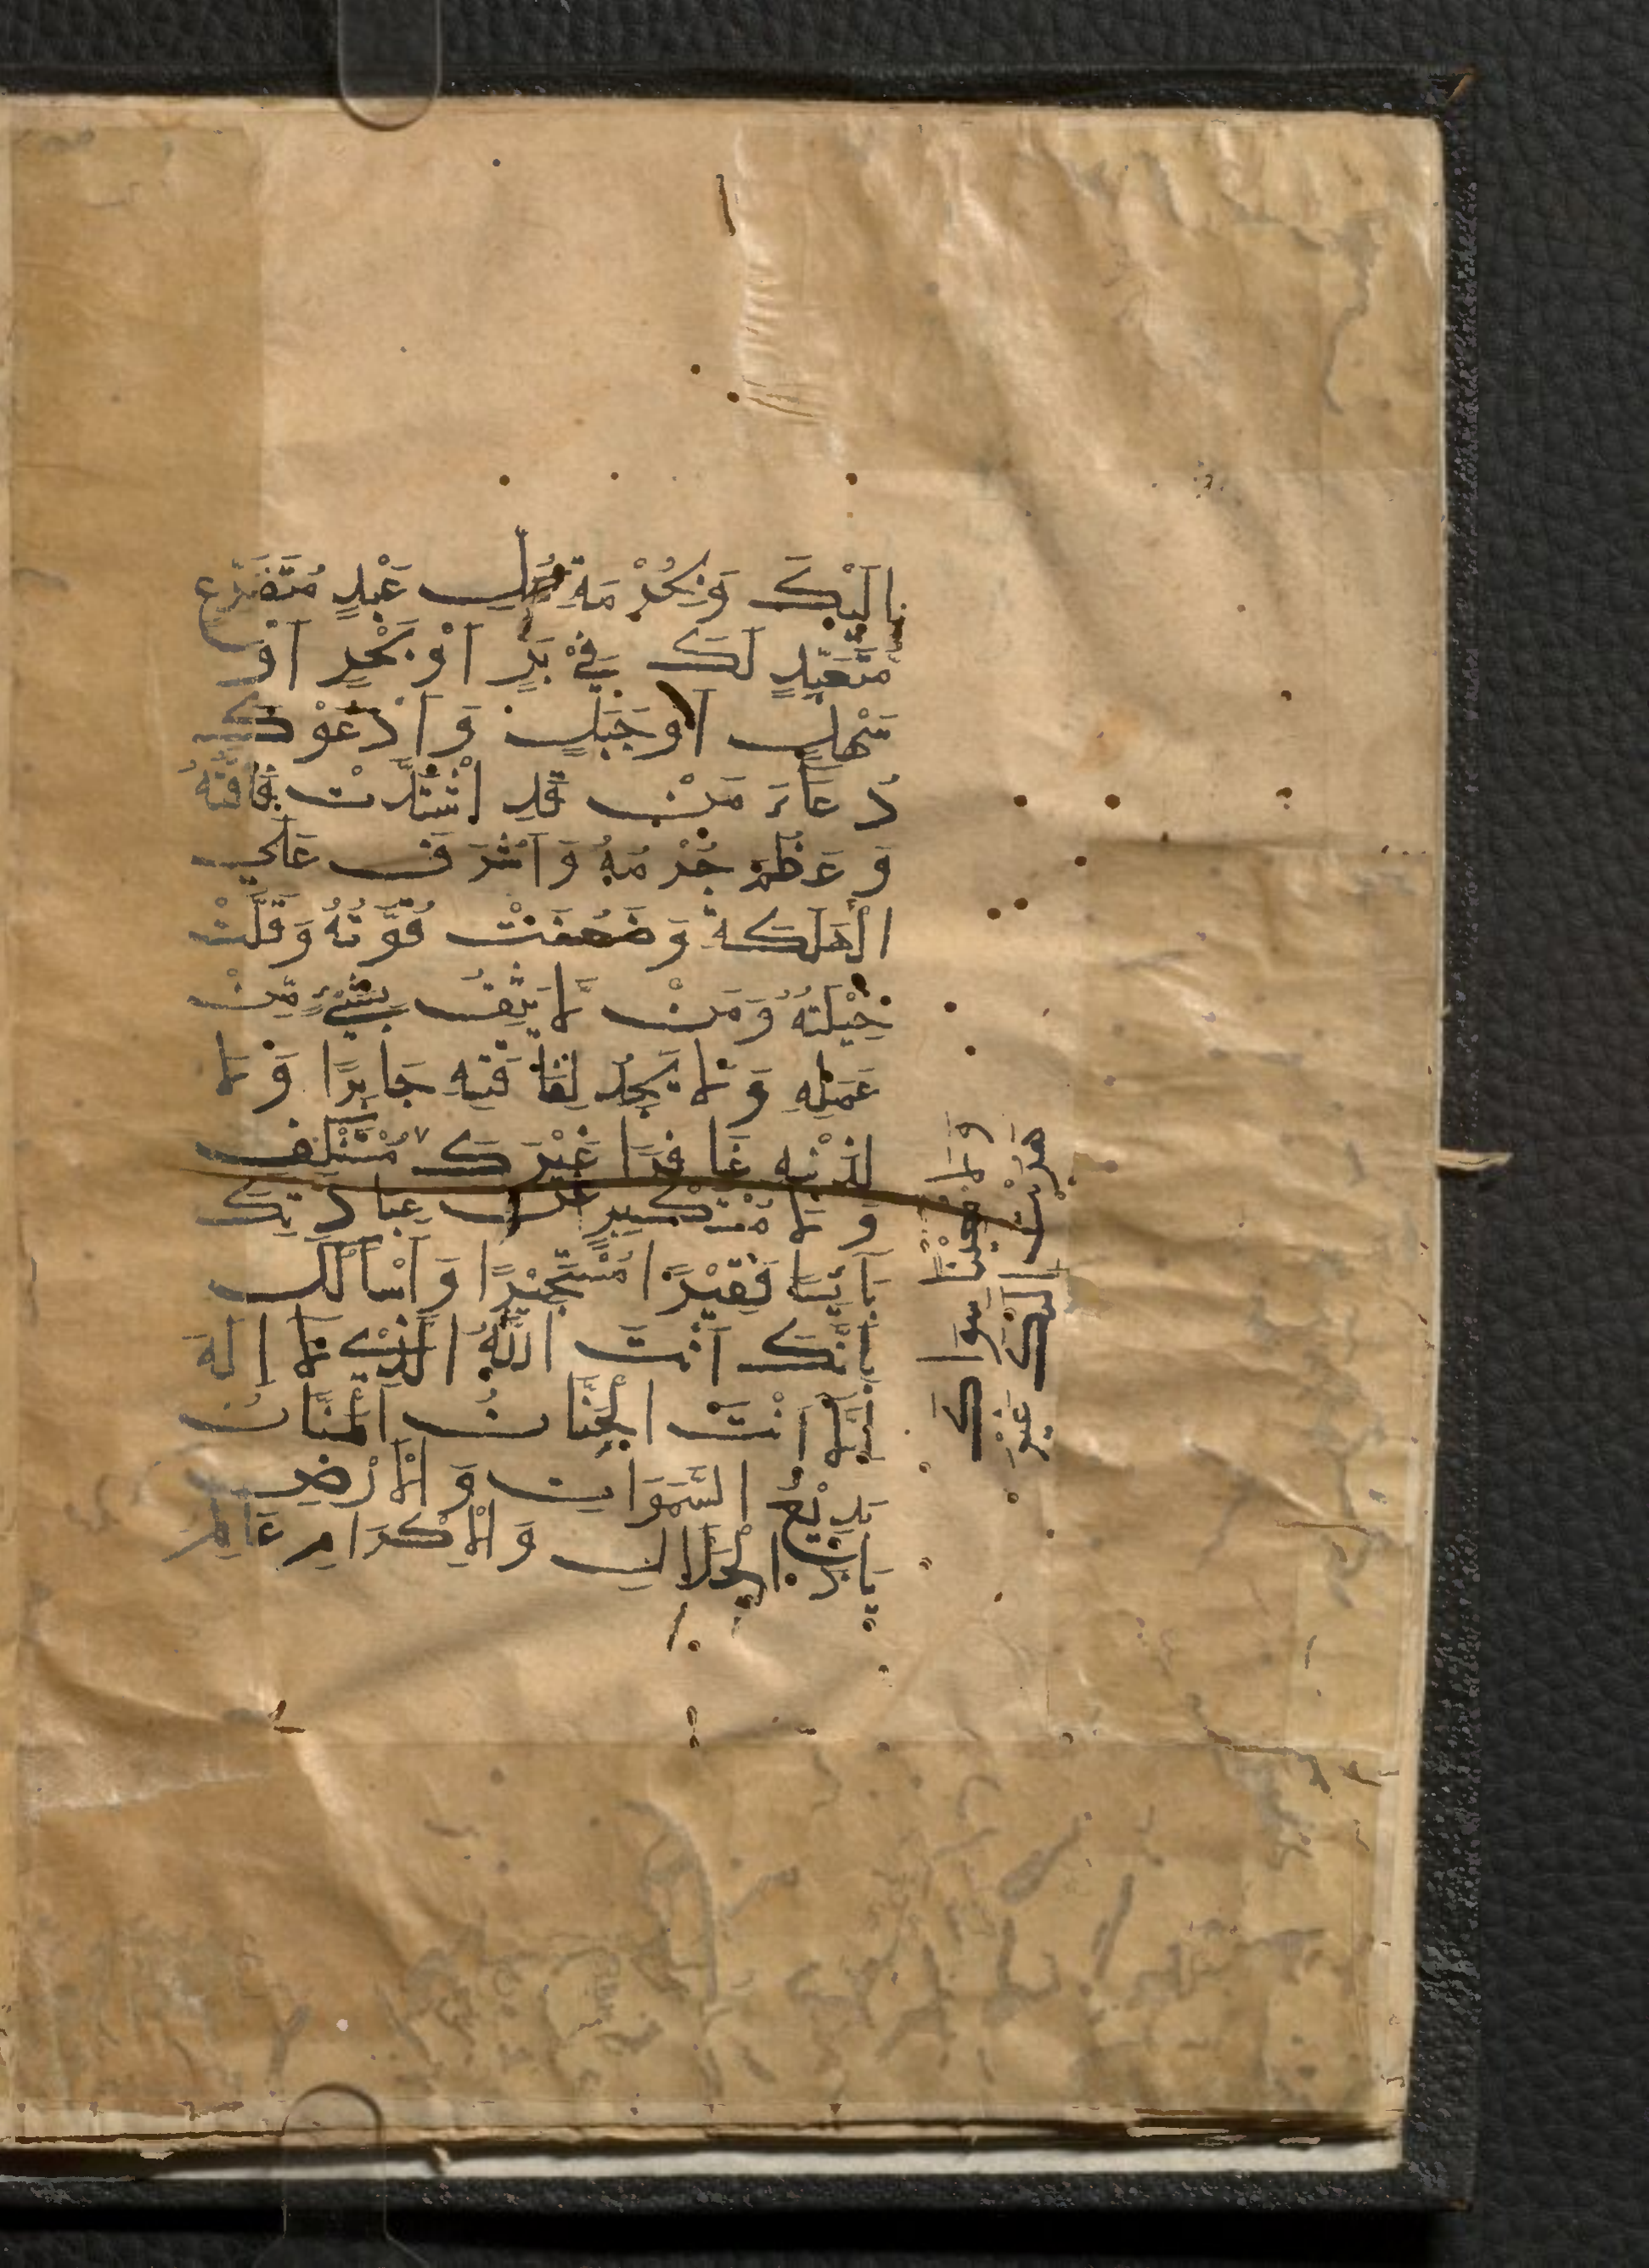 اِلَيْكَ وَبِحُرْمَةِ كُلِّ عَبْدٍ مُتَضَرِّعٍ
مُتَعَبِّدٍ لَكَ فِيْ بَرٍّ اَوْ بَحْرٍ اَوْ
سَهْلٍ اَوْ جَبَلٍ وَاَدْعُوْكَ
دُعَاءَ مَنْ قَدِ اشْتَدَّتْ فَاقَتُهُ
وَعَظُمَ جُرْمُهُ وَاَشْرَفَ عَلَى
الْهَلَكَةِ وَضَعُفَتْ قُوَّتُهُ وَقَلَّتْ
حِيْلَتُهُ وَمَنْ لَا يَثِقُ بِشَيْءٍ مِّنْ
عَمَلِهِ وَلَا يَجِدُ لِفَاقَتِهِ جَابِرًا وَلَا
لِذَنْبِهِ غَافِرًا غَيْرَكَ مُسْتَنْكِفٍ
وَلَا مُسْتَكْبِرٍ عَنْ عِبَادَتِكَ
بَائِسًا فَقِيْرًا مُسْتَجِيْرًا وَاَسْاَلُكَ
بِاَنَّكَ اَنْتَ اللّٰهُ الَّذِيْ لَا اِلَهَ
اِلَّا اَنْتَ الْحَنَّانُ الْمَنَّانُ
بَدِيْعُ السَّمَوَاتِ وَالْاَرْضِ
يَا ذَا الْجَلَالِ وَالْاِكْرَامِ عَالِمُ
هَرَبْتُ اِلَيْكَ غَيْرَ
وَلَا مُعِيْنًا سِوَاكَ